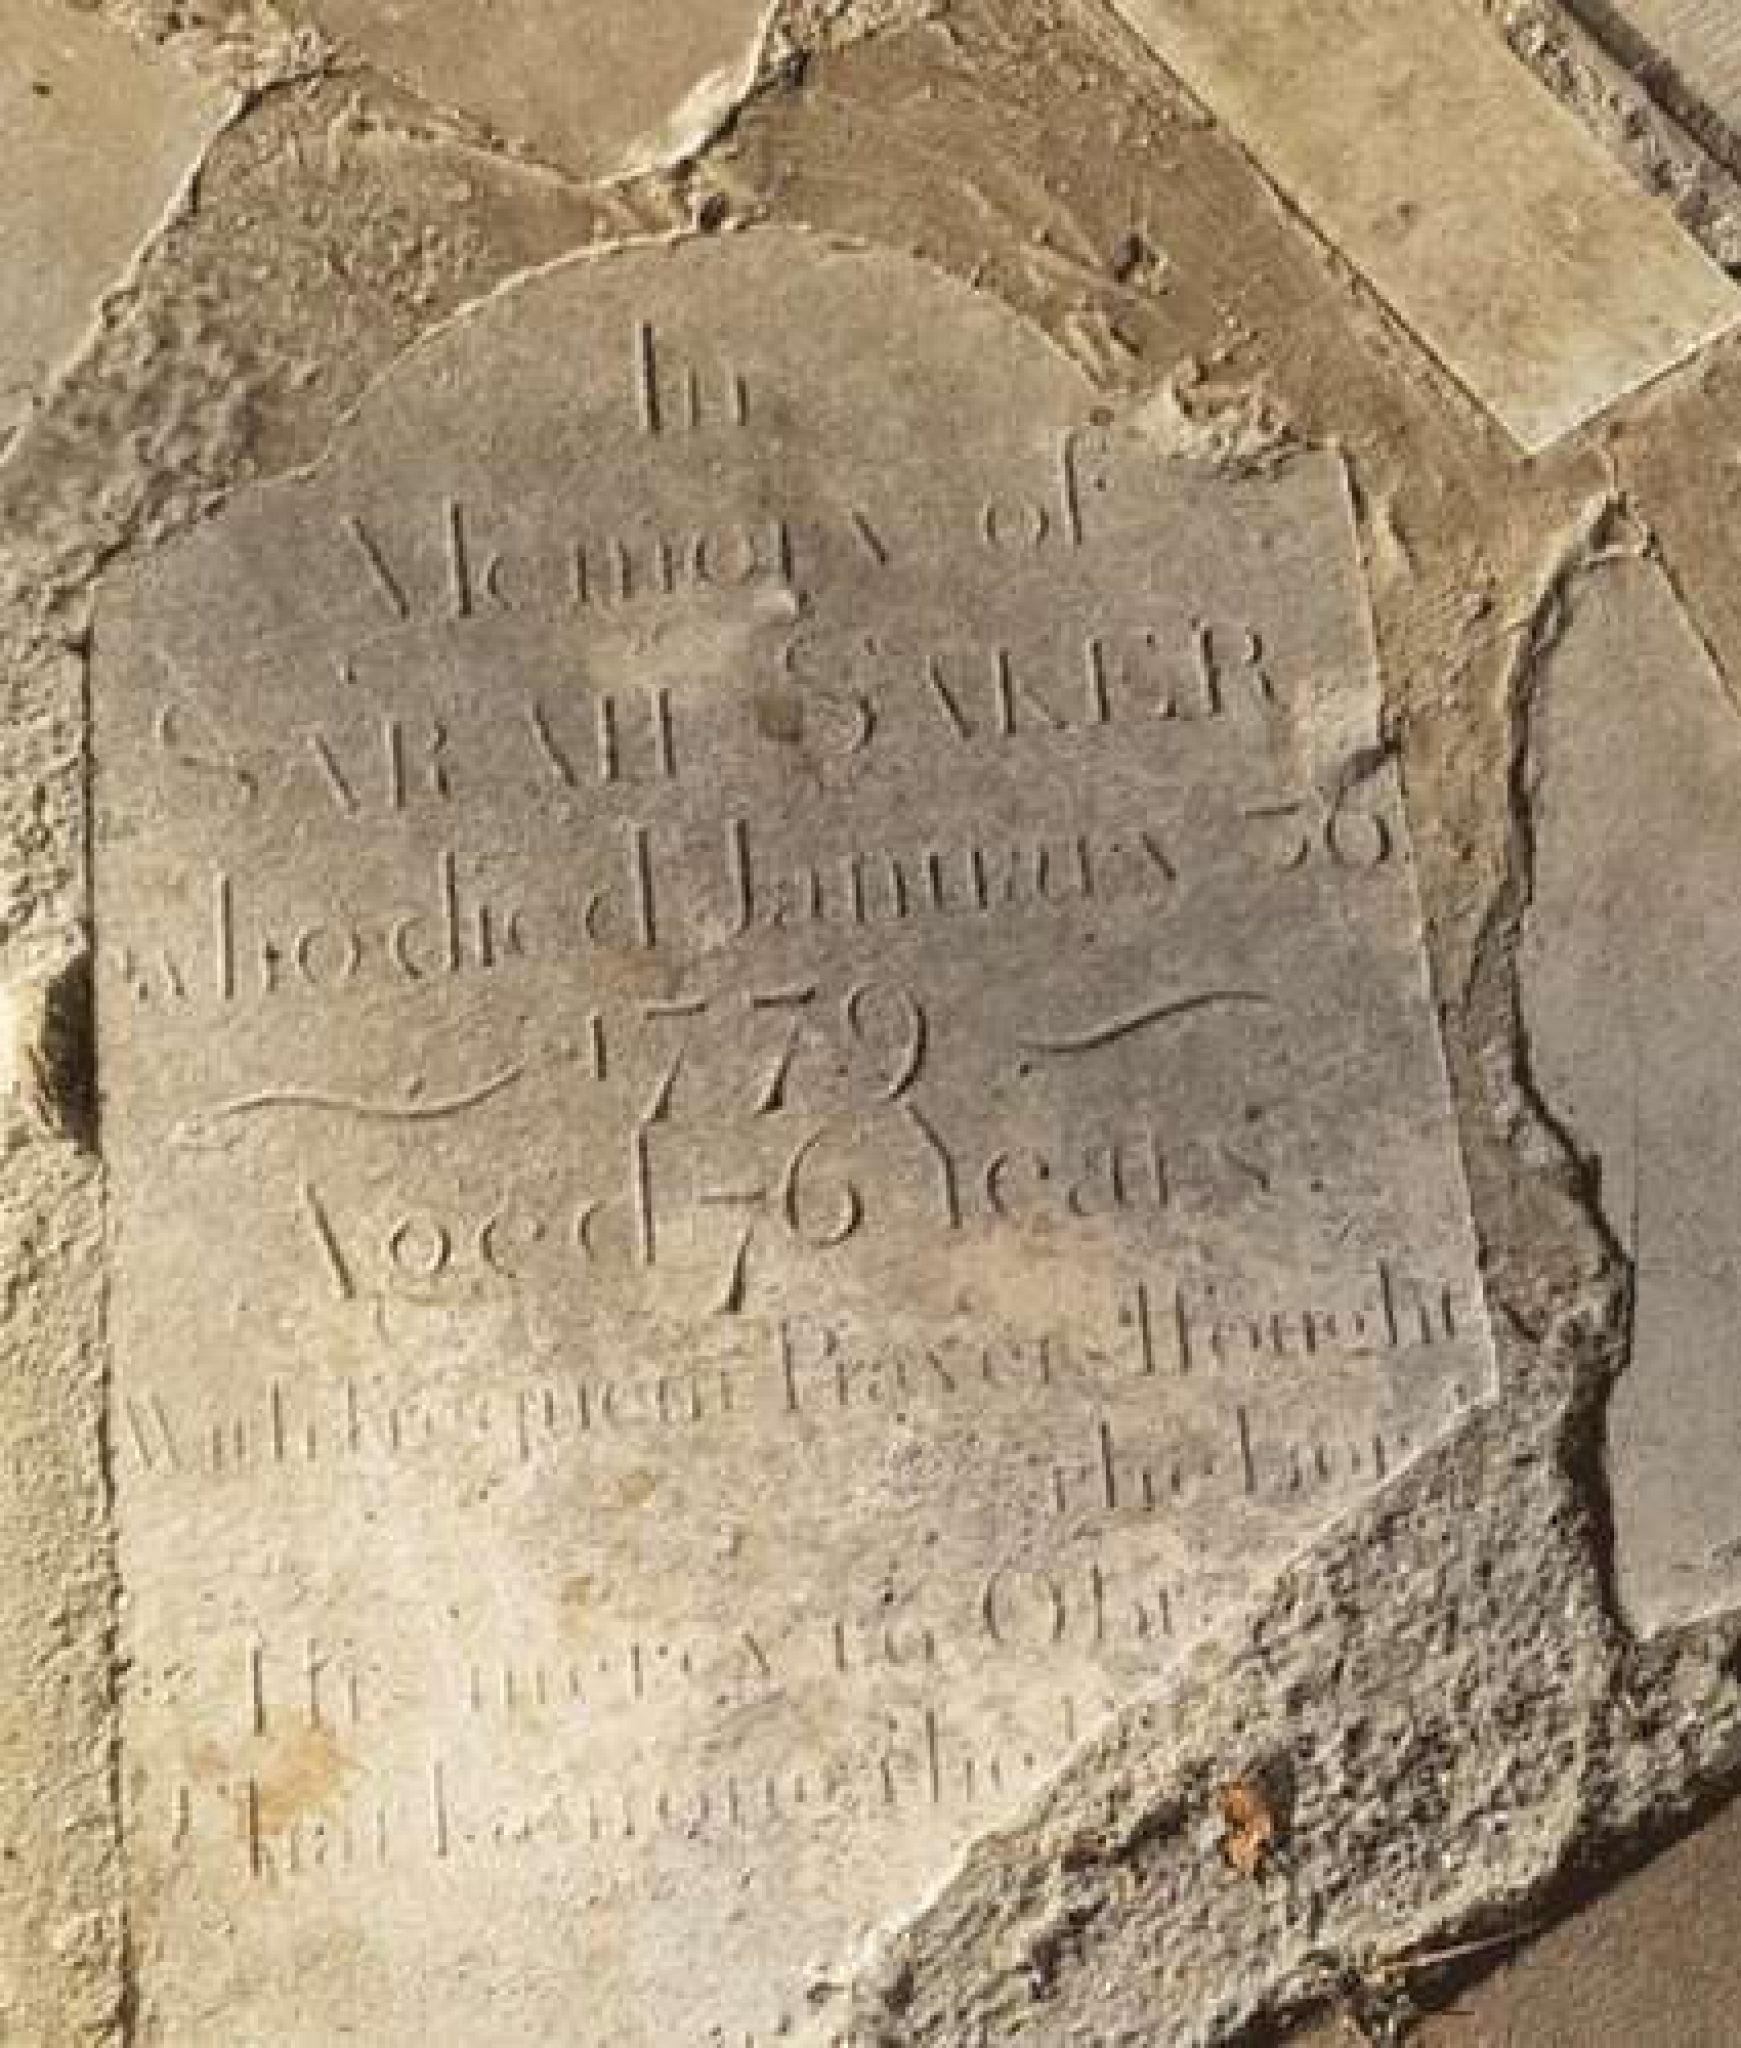 In
Memory of
SARAH SAKER
who died January 36
1779
Aged 76 Years.
With frequent Prayer I sought
the Lor
His mercy to Obta